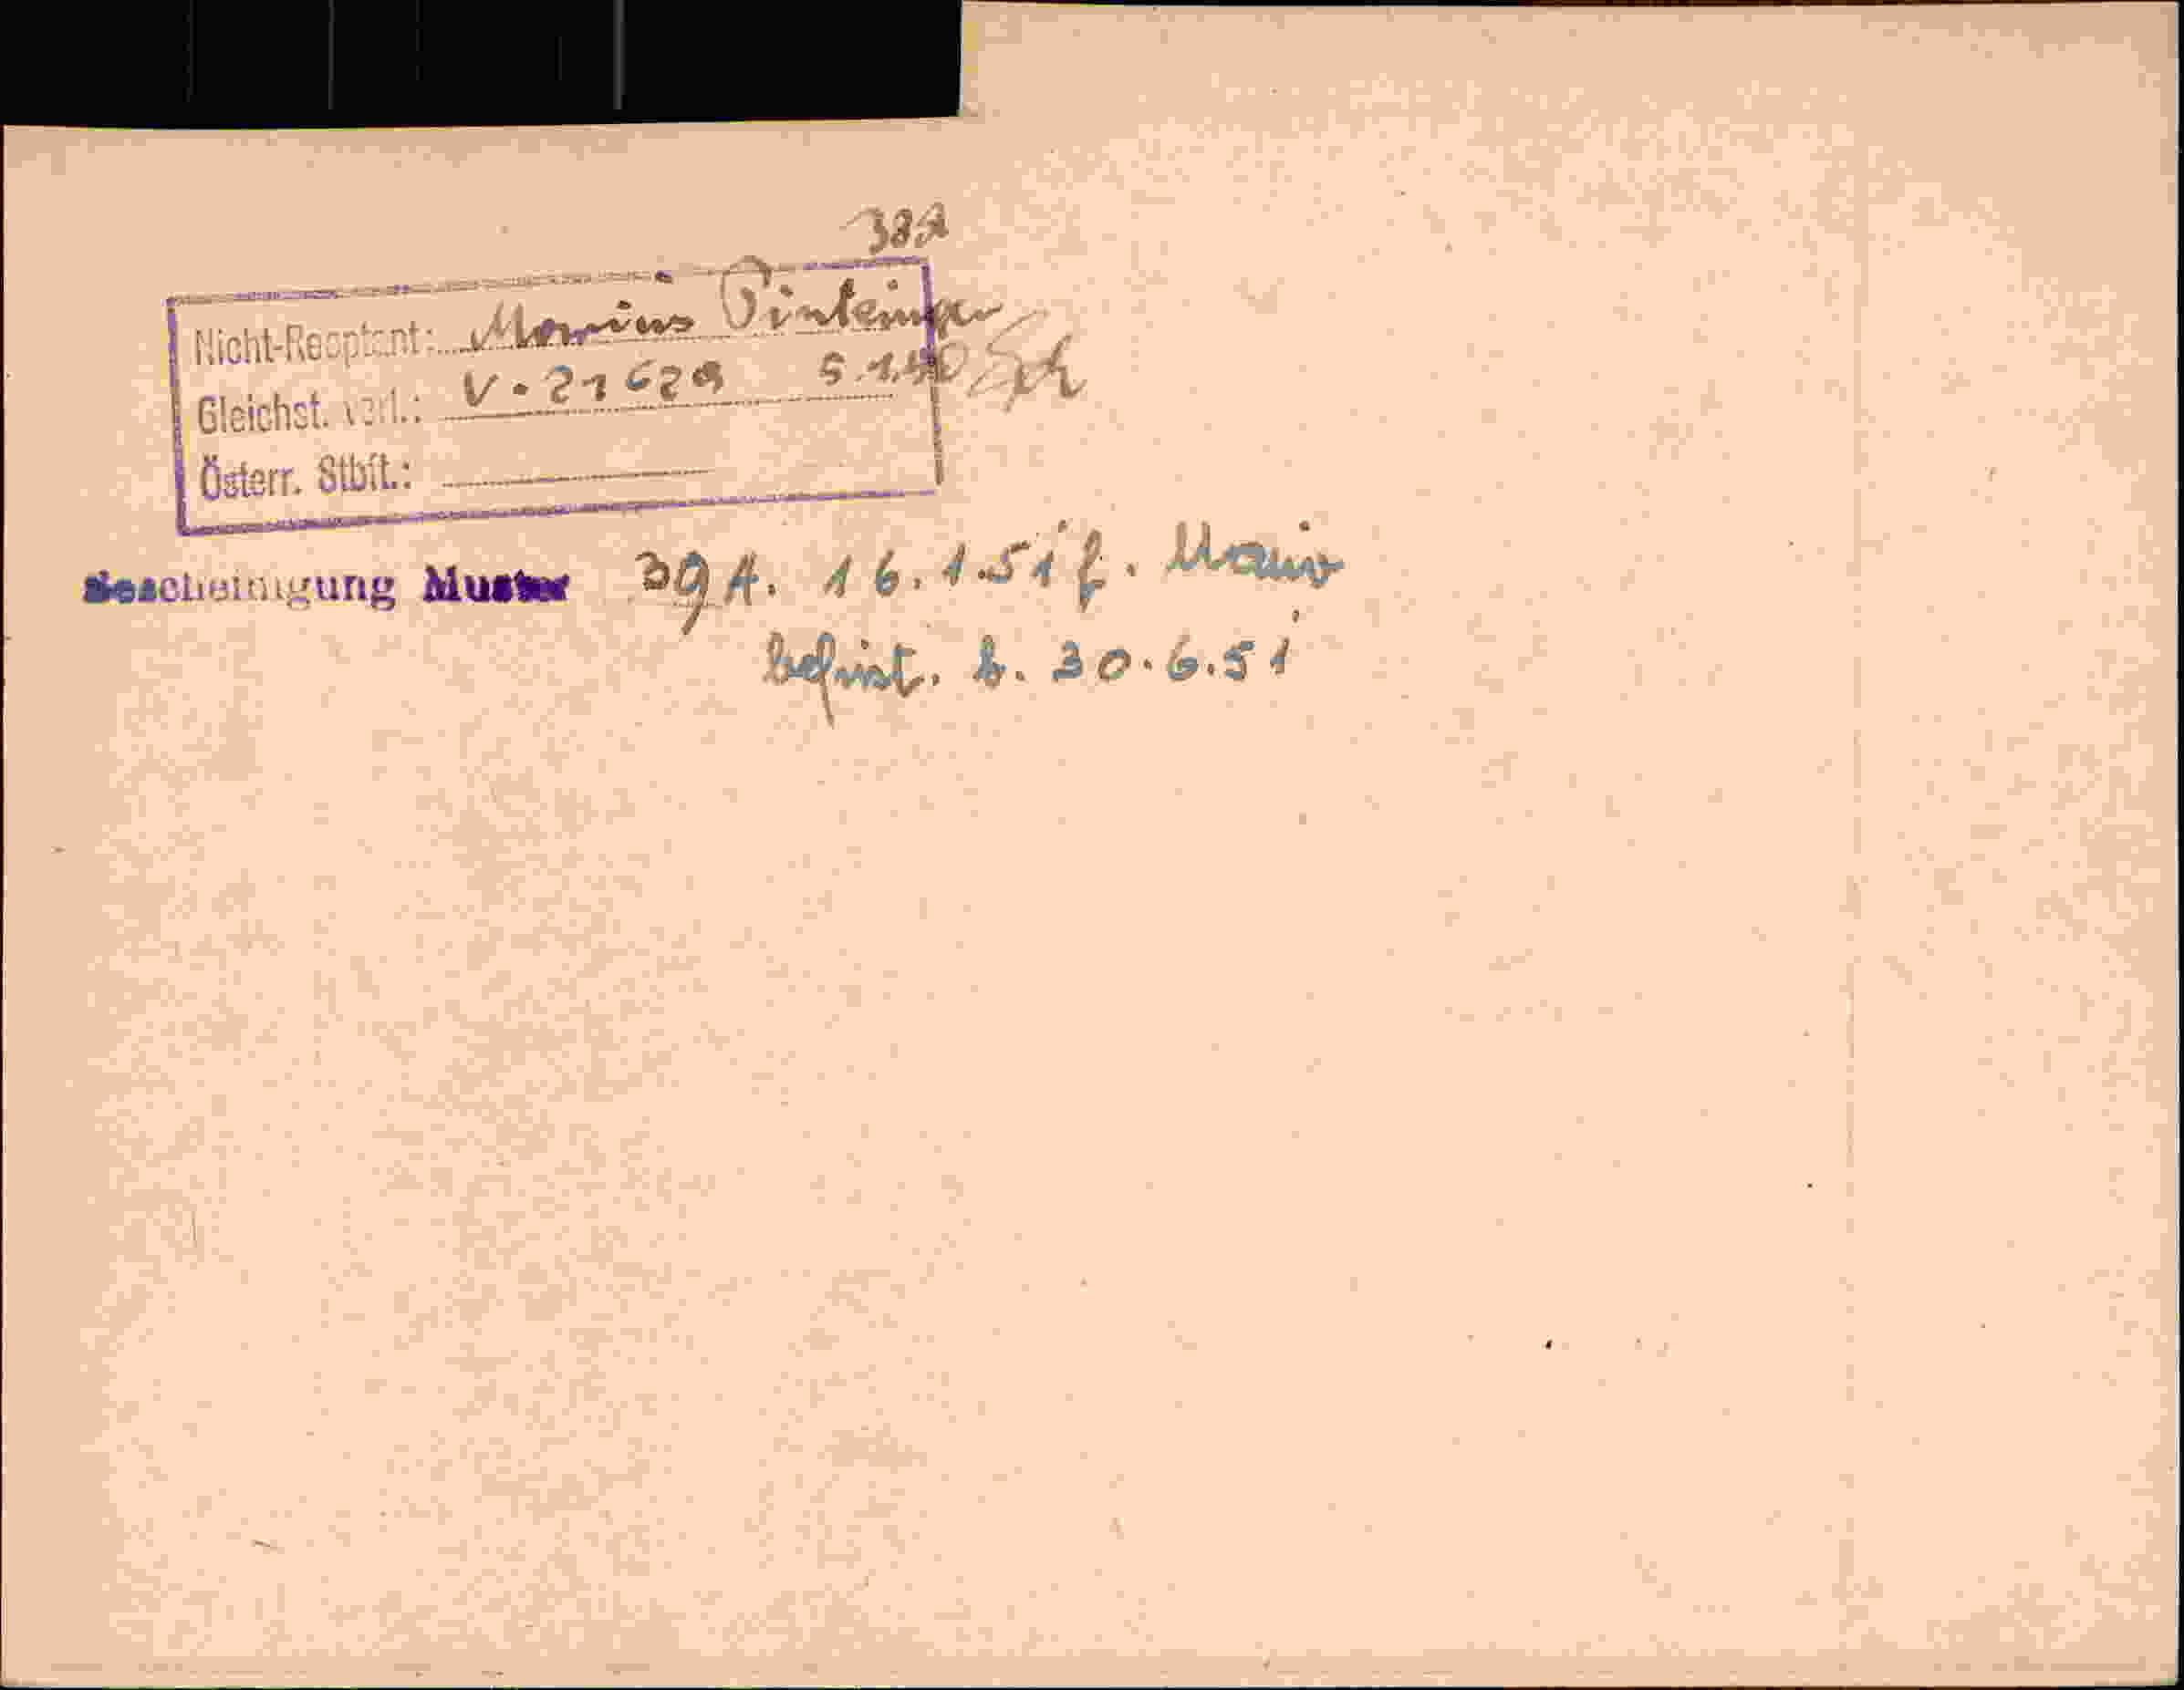 Nicht-Reoptant: Marius Pinteinger
Gleichst. verl.: V. 21629 5.1.50
Österr. Stbft.:
Bescheinigung Muster 39 A. 16.1.51 f.
befrist. b. 30.6.51